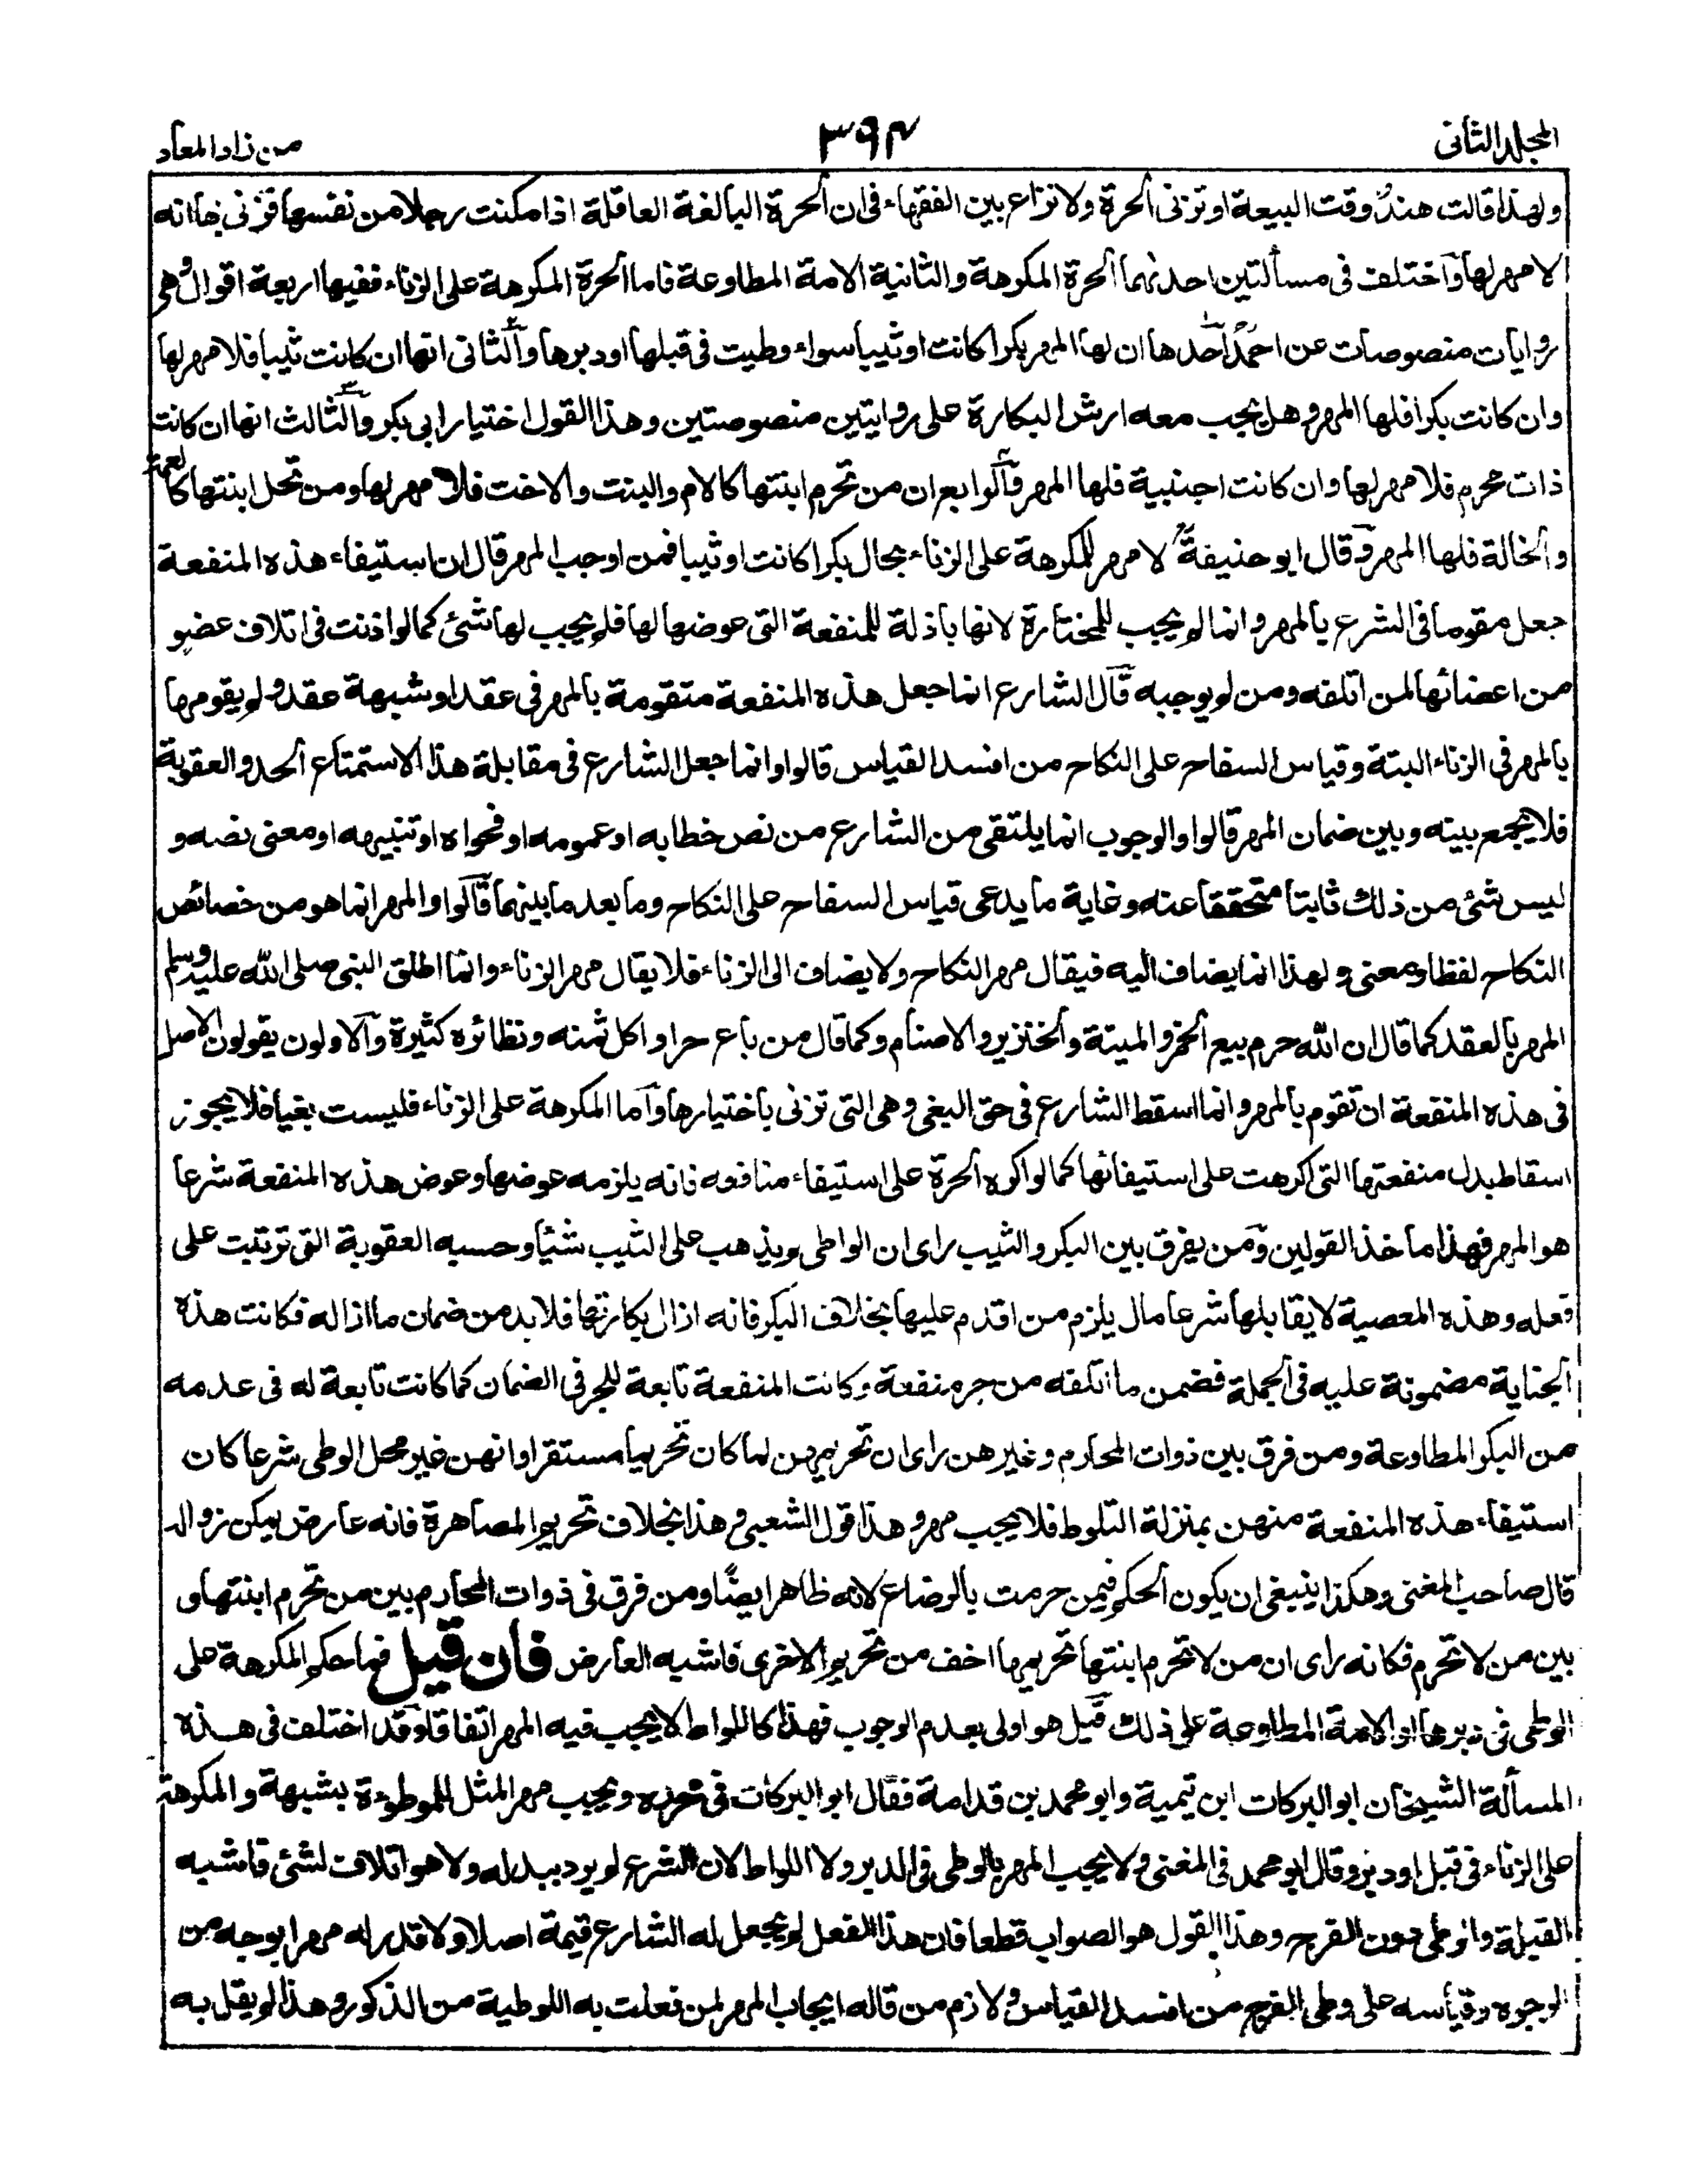 المجلد الثانى
٣٩٤
من زاد المعاد
ولهذا قالت هند وقت البيعة او تزنى الحرة ولا نزاع بين الفقهاء فى ان الحرة البالغة العاقلة اذا مكنت رجلا من نفسها فزنى بها انه
لا مهر لها واختلف فى مسألتين احدهما الحرة المكرهة والثانية الامة المطاوعة فاما الحرة المكرهة على الزناء ففيها اربعة اقوال وهى
روايات منصوصات عن احمد احدها ان لها المهر بكرا كانت او ثيبا سواء وطيت فى قبلها او دبرها والثانى انها ان كانت ثيبا فلا مهر لها
وان كانت بكرا فلها المهر وهل يجب معه ارش البكارة على روايتين منصوصتين وهذا القول اختيار ابى بكر والثالث انها ان كانت
ذات محرم فلا مهر لها وان كانت اجنبية فلها المهر والرابع ان من تحرم ابنتها كالام والبنت والاخت فلا مهر لها ومن تحل ابنتها كالعمة
والخالة فلها المهر وقال ابو حنيفة لا مهر للمكرهة على الزناء بحال بكرا كانت او ثيبا فمن اوجب المهر قال ان استيفاء هذه المنفعة
جعل مقوما فى الشرع بالمهر وانما لم يجب للمختارة لانها باذلة للمنفعة التى عوضها لها فلم يجب لها شئ كما لو اذنت فى اتلاف عضو
من اعضائها لمن اتلفه ومن لم يوجبه قال الشارع انما جعل هذه المنفعة متقومة بالمهر فى عقد او شبهة عقد ولم يقومها
بالمهر فى الزناء البتة وقياس السفاح على النكاح من افسد القياس قالوا وانما جعل الشارع فى مقابلة هذا الاستمتاع الحد والعقوبة
فلا يجمع بينه وبين ضمان المهر قالوا والوجوب انما يلتقى من الشارع من نص خطابه او عمومه او فحواه او تنبيهه او معنى نصه و
ليس شئ من ذلك ثابتا متحققا عنه وغاية ما يدعى قياس السفاح على النكاح وما بعد ما بينهما قالوا والمهر انما هو من خصائص
النكاح لفظا ومعنى ولهذا انما يضاف اليه فيقال مهر النكاح ولا يضاف الى الزناء فلا يقال مهر الزناء وانما اطلق النبى صلى الله عليه وسلم
المهر بالعقد كما قال ان الله حرم بيع الخمر والميتة والخنزير والاصنام وكما قال من باع حرا واكل ثمنه ونظائره كثيرة والاولون يقولون الاصل
فى هذه المنفعة ان تقوم بالمهر وانما اسقط الشارع فى حق البغى وهى التى تزنى باختيارها واما المكرهة على الزناء فليست بغيا فلا يجوز
اسقاط بدل منفعتها التى اكرهت على استيفائها كما لو اكره الحرة على استيفاء منافعه فانه يلزمه عوضها وعوض هذه المنفعة شرعا
هو المهر فهذا ماخذ القولين ومن يفرق بين البكر والثيب راى ان الواطى لم يذهب على الثيب شيئا وحسبه العقوبة التى ترتبت على
فعله وهذه المعصية لا يقابلها شرعا مال يلزم من اقدم عليها بخلاف البكر فانه ازال بكارتها فلا بد من ضمان ما ازاله فكانت هذه
الجناية مضمونة عليه فى الجملة فضمن ما اتلفه من جزء منفعة وكانت المنفعة تابعة للجزء فى الضمان كما كانت تابعة له فى عدمه
من البكر المطاوعة ومن فرق بين ذوات المحارم وغيرهن راى ان تحريمهن لما كان تحريما مستقرا وانهن غير محل الوطى شرعا كان
استيفاء هذه المنفعة منهن بمنزلة التلوط فلا يجب مهر وهذا قول الشعبى وهذا بخلاف تحريم المصاهرة فانه عارض يمكن زواله
قال صاحب المغنى وهكذا ينبغى ان يكون الحكم فيمن حرمت بالرضاع لانه ظاهر ايضًا ومن فرق فى ذوات المحارم بين من تحرم ابنتها و
بين من لا تحرم فكانه راى ان من لا تحرم ابنتها تحريمها اخف من تحريم الاخرى فاشبه العارض فان قيل فما حكم المكرهة على
الوطى فى دبرها او الامة المطاوعة على ذلك قيل هو اولى بعدم الوجوب فهذا كاللواط لا يجب فيه المهر اتفاقا وقد اختلف فى هذه
المسألة الشيخان ابو البركات ابن تيمية وابو محمد بن قدامة فقال ابو البركات فى محرره ويجب مهر المثل للموطوءة بشبهة والمكرهة
على الزناء فى قبل او دبر وقال ابو محمد فى المغنى ولا يجب المهر بالوطى فى الدبر ولا اللواط لان الشرع لم يرد ببدله ولا هو اتلاف لشئ فاشبه
القبلة والوطى دون الفرج وهذا القول هو الصواب قطعا فان هذا الفعل لم يجعل له الشارع قيمة اصلا ولا قدر له مهرا بوجه من
الوجوه وقياسه على وطى الفرج من افسد القياس ولازم من قاله ايجاب المهر لمن فعلت به اللوطية من الذكور وهذا لم يقل به